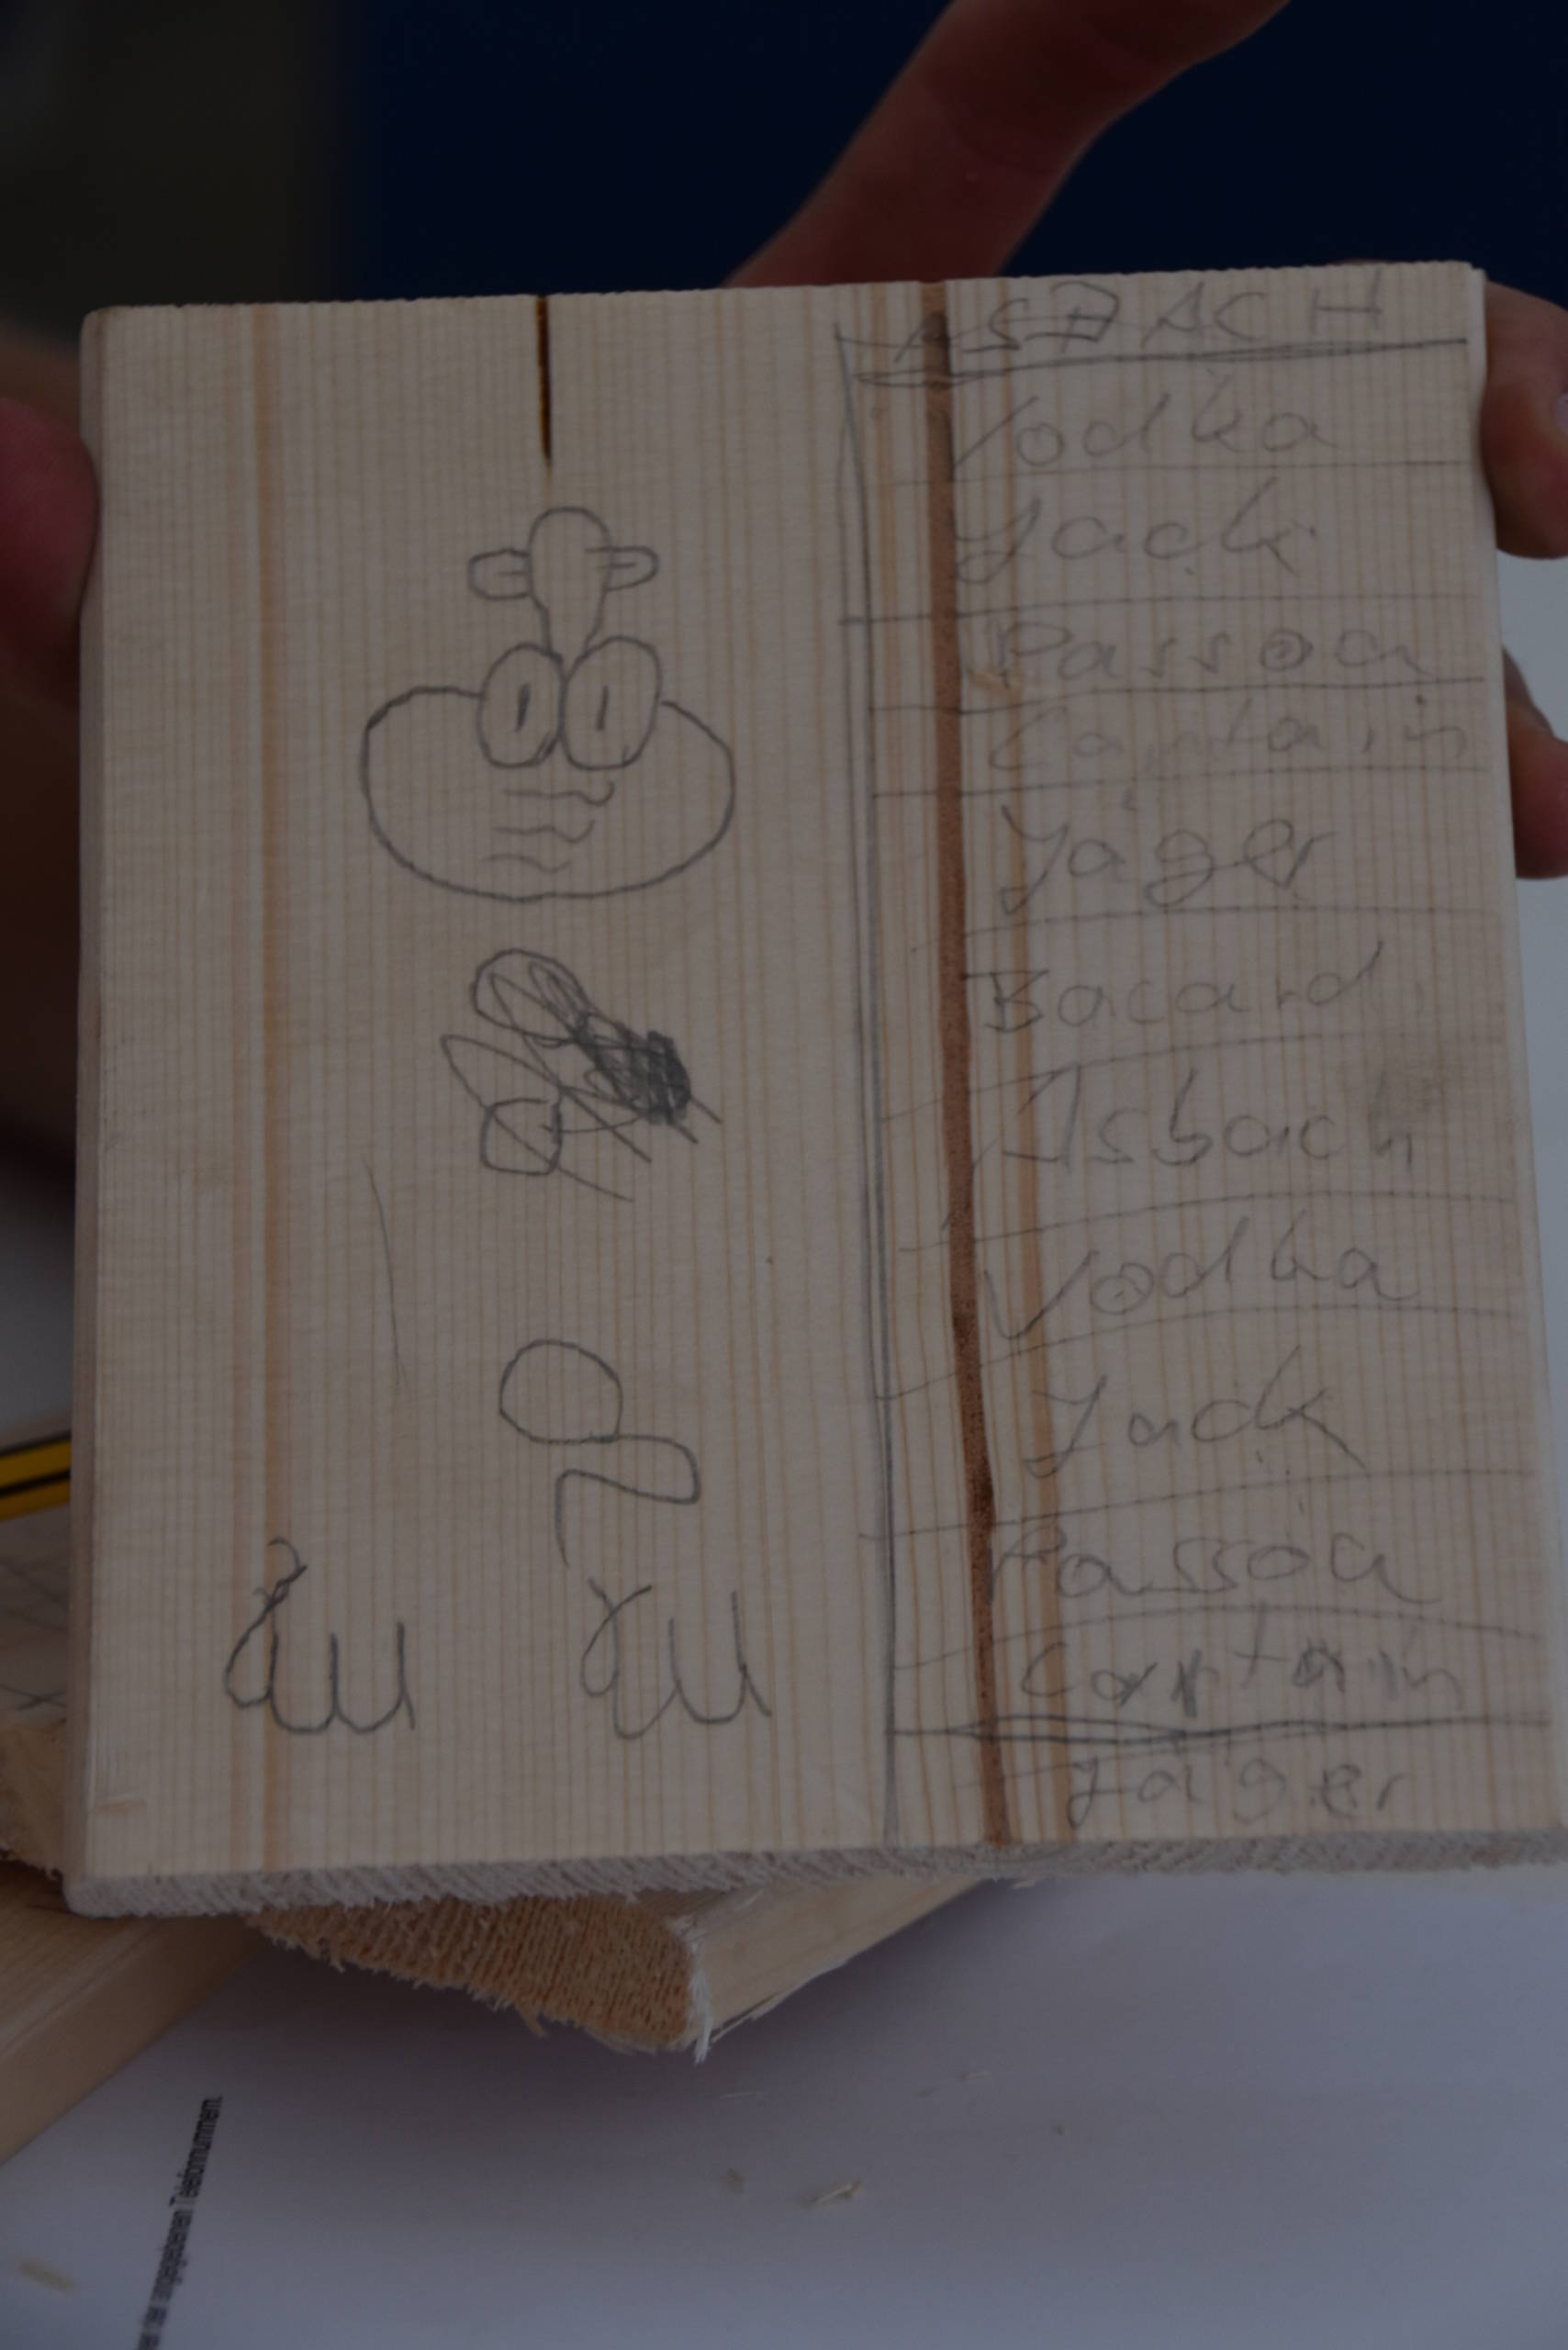 ASBACH
Vodka
Jack
Passoa
Captain
Jäger
Bacardi
Asbach
Vodka
Jack
Passoa
Captain
Jäger
angegebenen Telefonnummern.